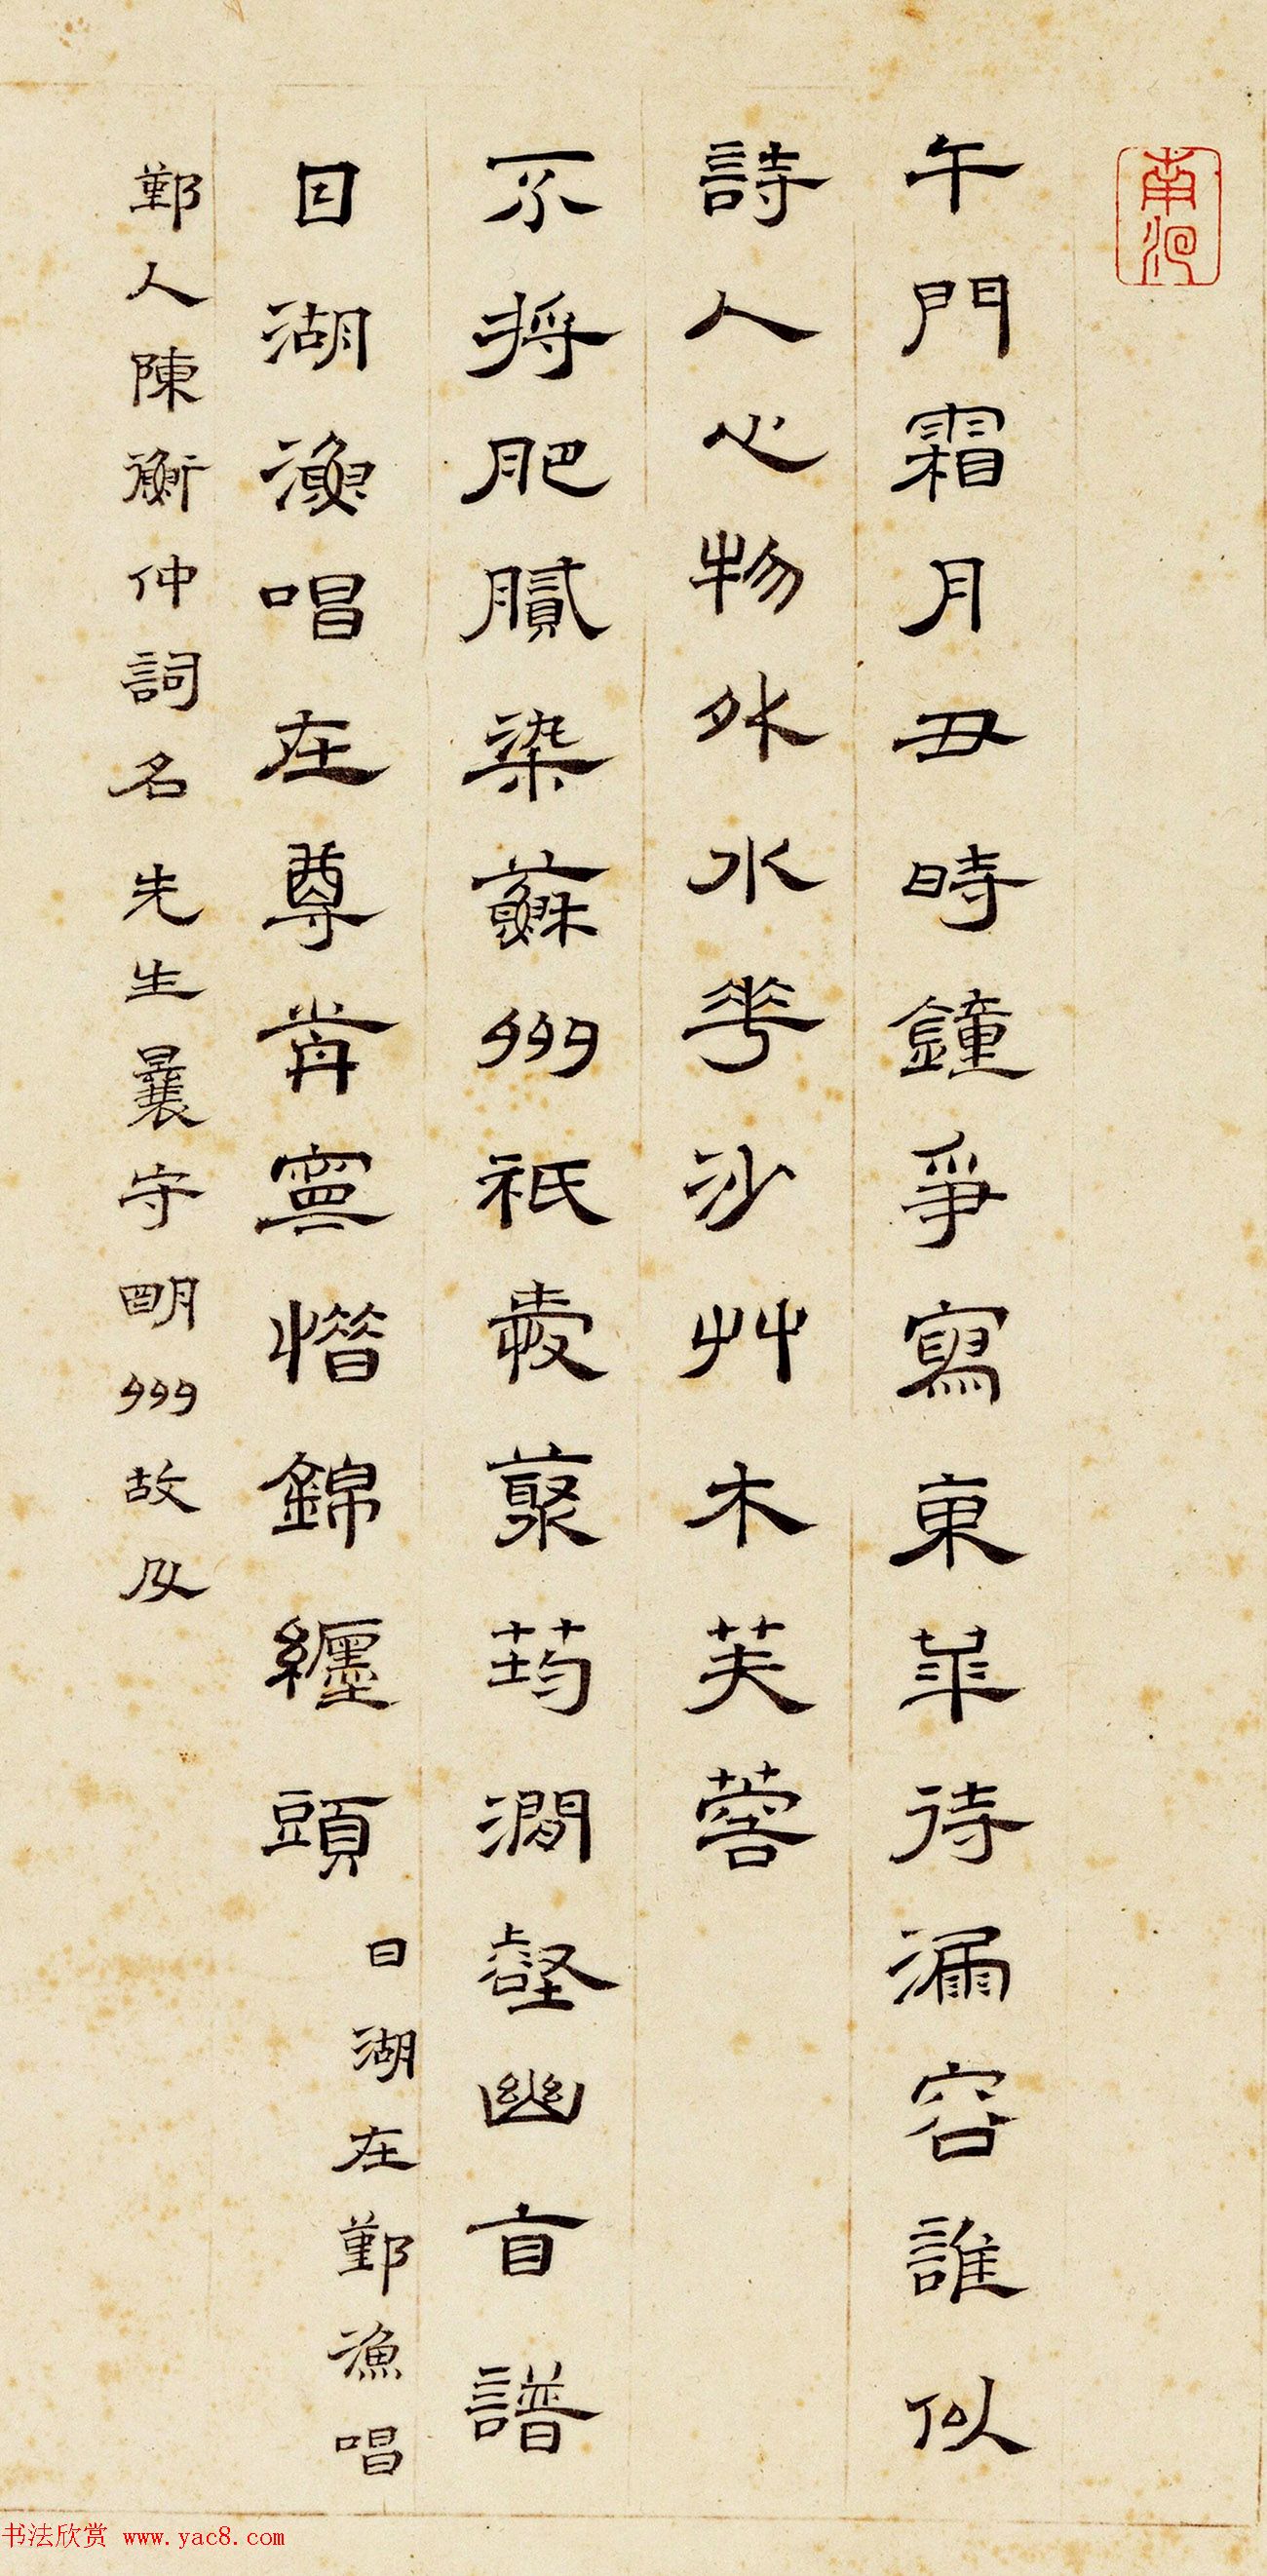 午門霜月丑時鐘爭寫東華待漏容誰似
詩人心物外水華沙艸木芙蓉
不将肥膩染蘇州祇愛藂筠澗壑幽盲譜
日湖漁唱在尊前寧惜錦纏頭
日湖在鄞漁唱
鄞人陳衡仲詞名先生曩守明州故及
书法欣赏 www.yac8.com